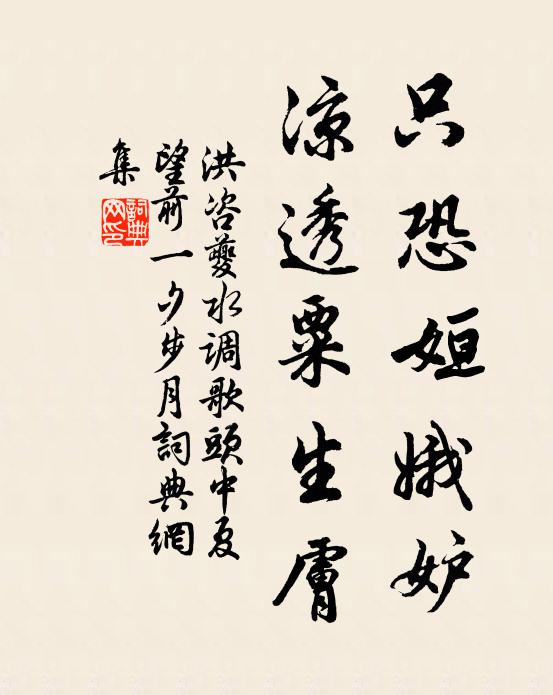 只恐姮娥妒
凉透粟生膚
洪咨夔水调歌頭中夏
望前一夕步月詞典網
集
詞典
网印